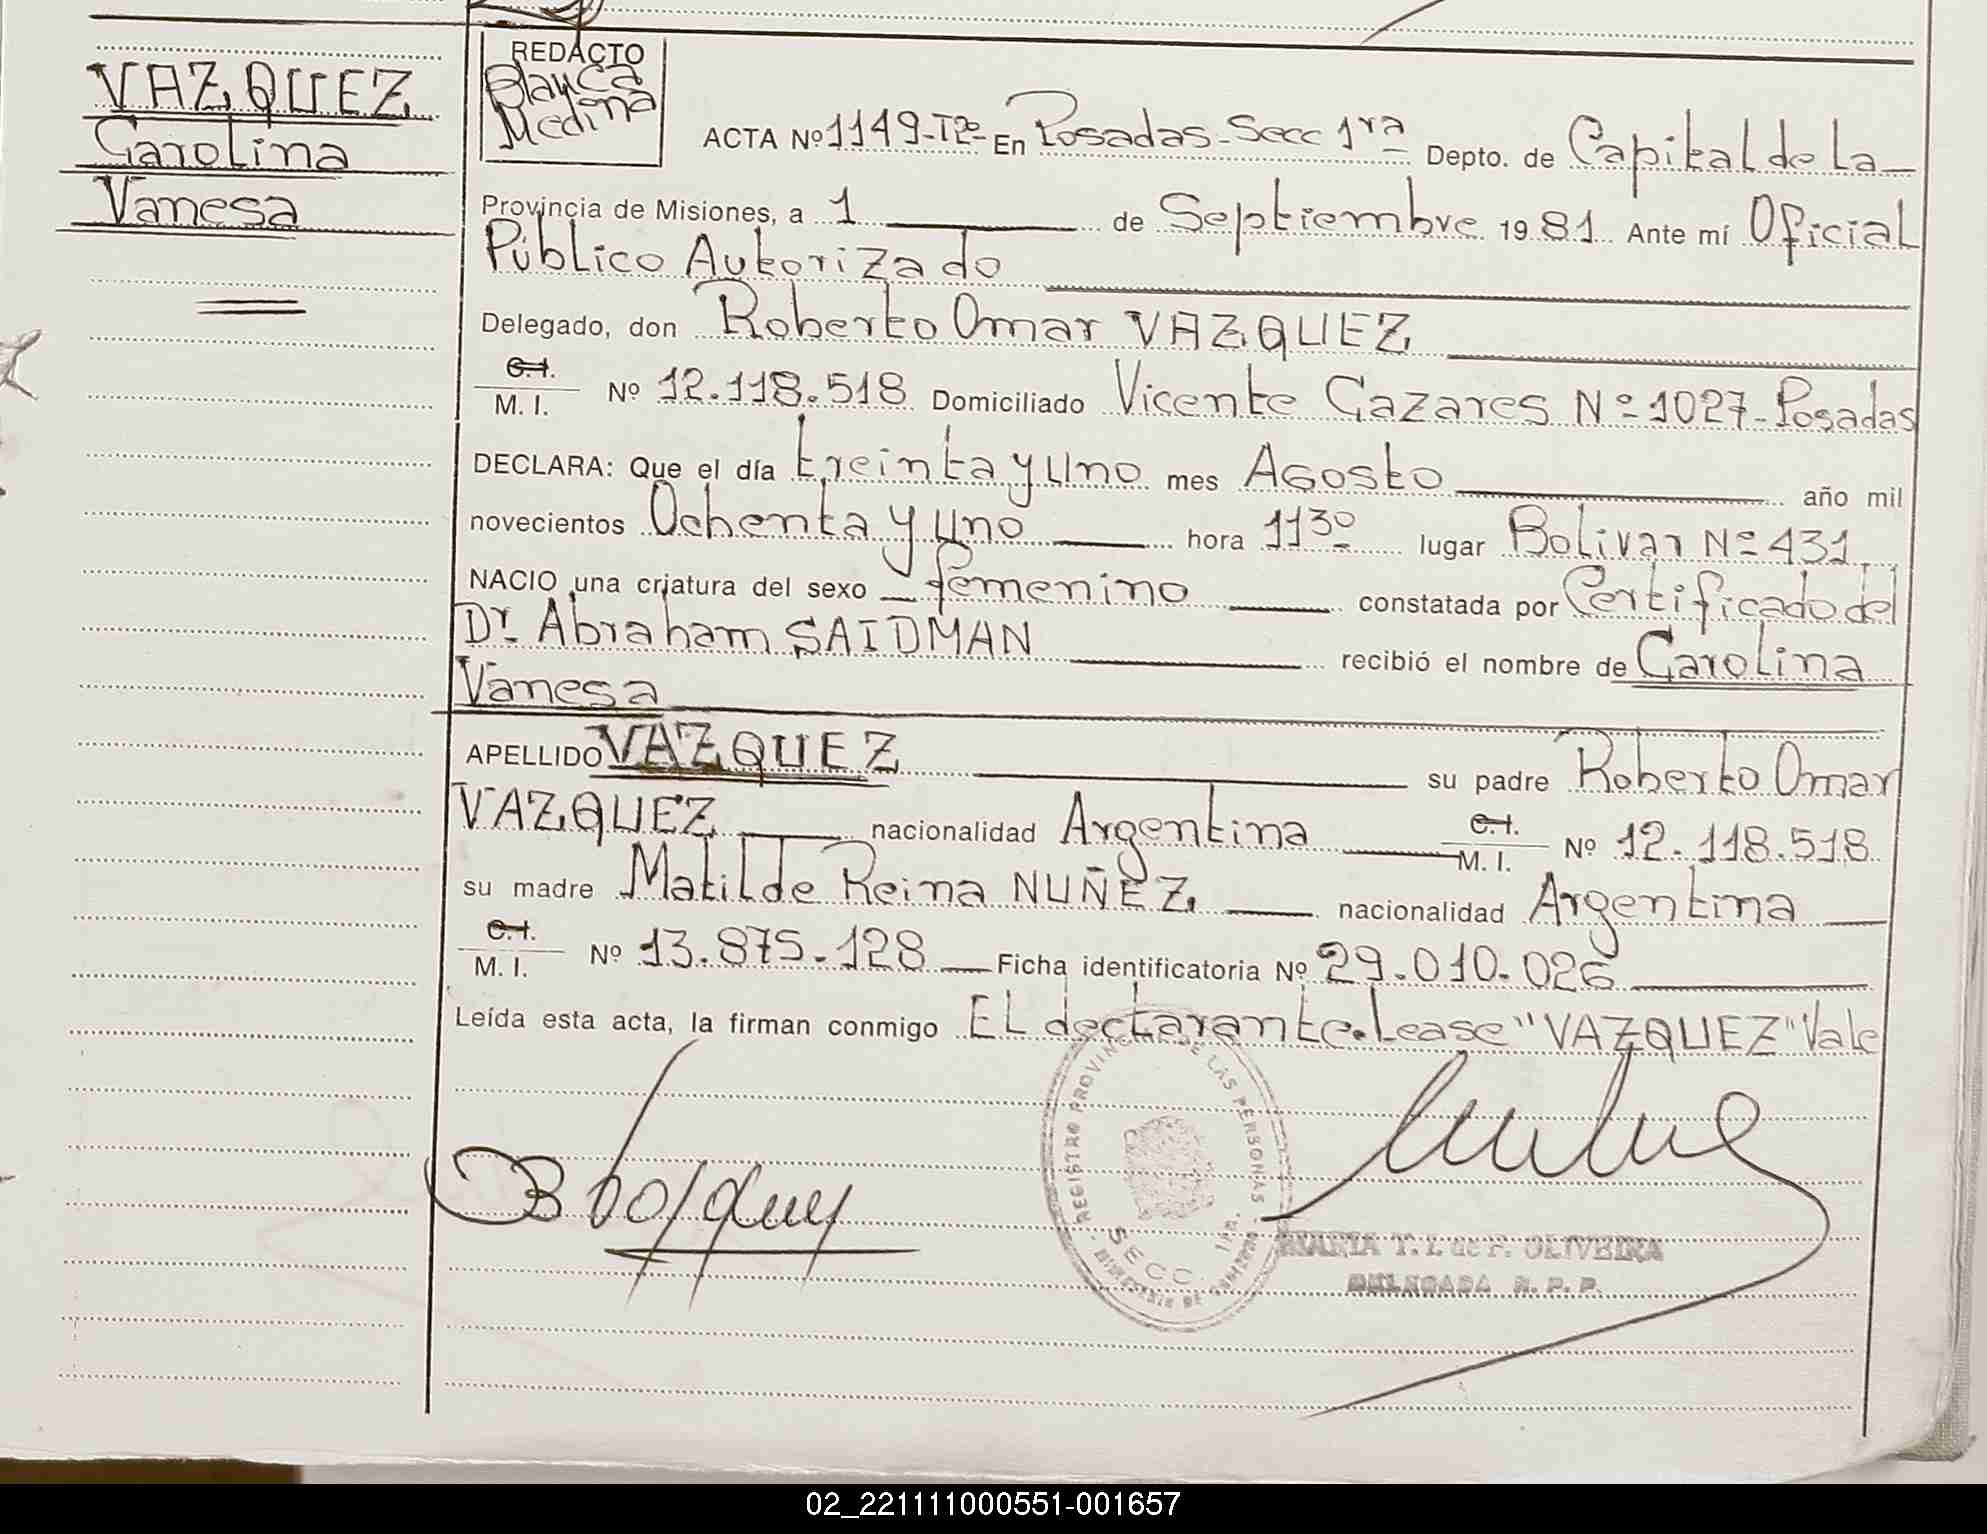 VAZQUEZ
Carolina
Vanesa
REDACTO
Blanca
Medina
ACTA Nº 1149-Tº2º- En Posadas-Secc 1ra Depto. de Capital de La
Provincia de Misiones, a 1 de Septiembre 1981 Ante mí Oficial
Público Autorizado
Delegado, don Roberto Omar VAZQUEZ
C.I.
M. I. Nº 12.118.518 Domiciliado Vicente Cazares Nº 1027-Posadas
DECLARA: Que el día treinta y uno mes Agosto año mil
novecientos Ochenta y uno hora 1130 lugar Bolivar Nº 431
NACIO una criatura del sexo femenino constatada por Certificado del
Dr. Abraham SAIDMAN recibió el nombre de Carolina
Vanesa
APELLIDO VAZQUEZ su padre Roberto Omar
VAZQUEZ nacionalidad Argentina C.I. M. I. Nº 12.118.518
su madre Matilde Reina NUÑEZ nacionalidad Argentina
C.I.
M. I. Nº 13.875.128 Ficha identificatoria Nº 29.010.026
Leída esta acta, la firman conmigo EL declarante. Lease "VAZQUEZ" Vale
REGISTRO PROVINCIAL DE LAS PERSONAS
SECC. 1ra.
MINISTERIO DE GOBIERNO
MARIA T. I. de F. OLIVEIRA
DELEGADA R. P. P.
02_221111000551-001657